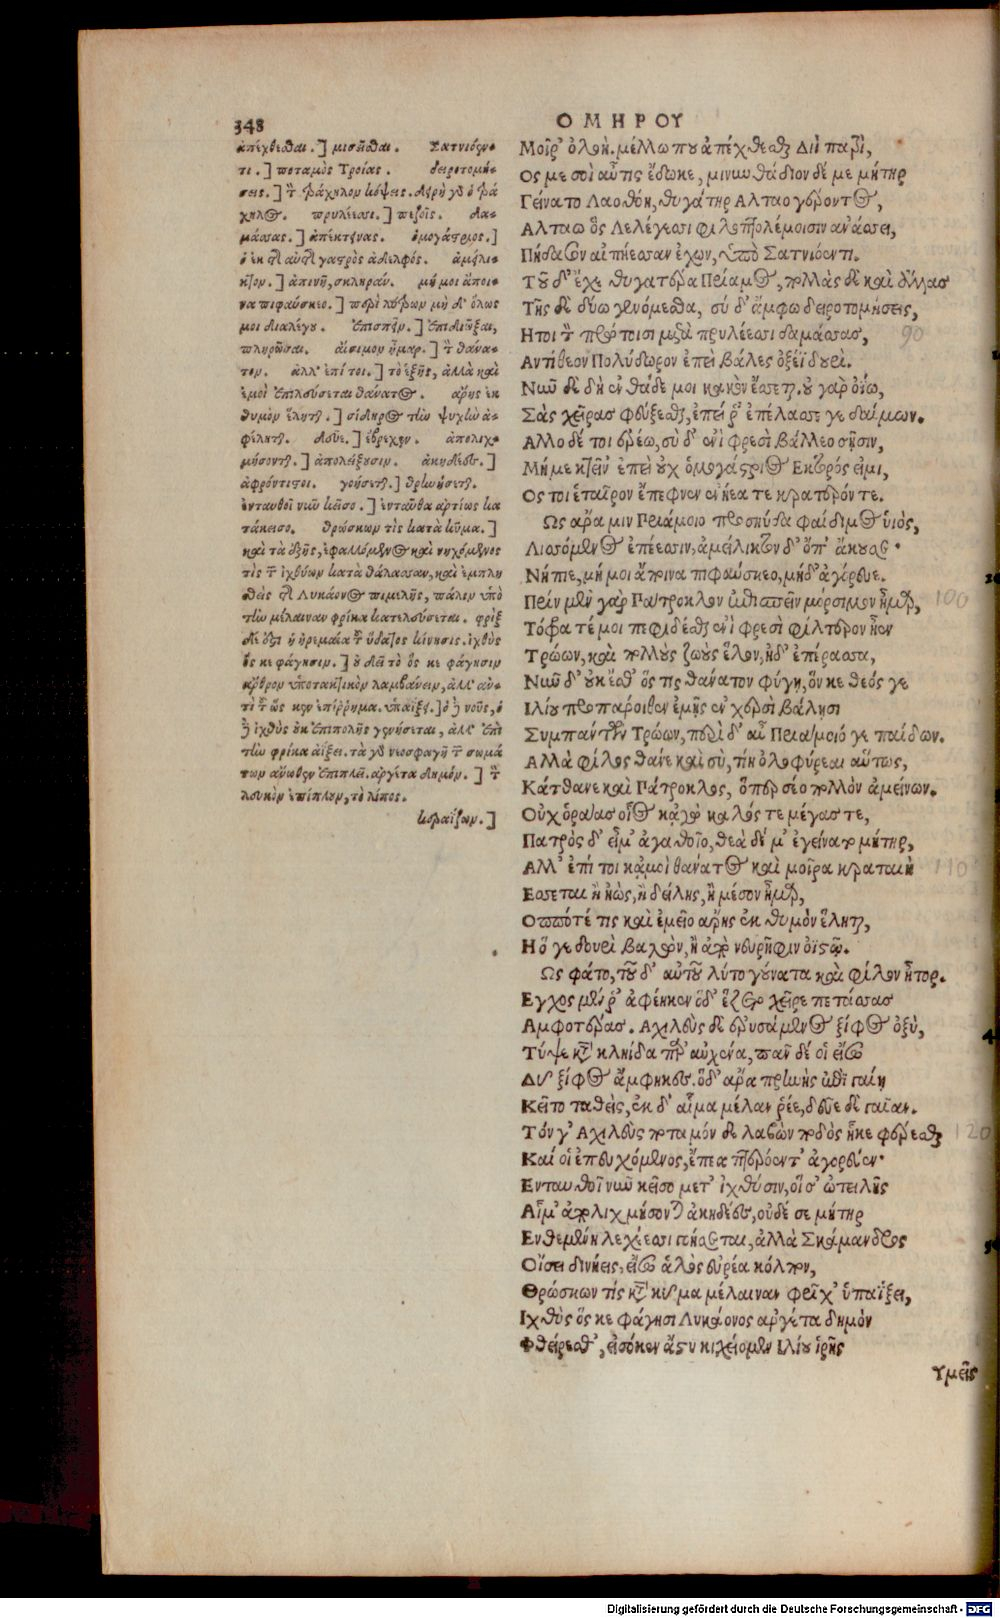 348
ΟΜΗΡΟΥ
ἀπέχθεσθαι.] μισεῖσθαι. Σατνιόεν-
τι.] ποταμὸς Τροίας. δειροτομή-
σεις.] τὸν τράχηλον κόψεις. δειρὴ γὰρ ὁ τρά
χηλος. πρυλέεσι.] πεζοῖς. δα-
μάσσας.] ἀπέκτεινας. ὁμογάστριος.]
ὁ ἐκ τῆς αὐτῆς γαστρὸς ἀδελφός. ἀμείλι-
κτον.] ἀπινῆ, σκληράν. μή μοι ἄποι-
να πιφαύσκεο.] περὶ λύτρων μὴ δ' ὅλως
μοι διαλέγου. ἐπισπεῖν.] ἐπιδιῶξαι,
πληρῶσαι. αἴσιμον ἦμαρ.] τὸν θάνα-
τον. ἀλλ' ἐπί τοι.] τὸ ἑξῆς, ἀλλὰ καὶ
ἐμοὶ ἐπελεύσεται θάνατος. ἄρης ἐκ
θυμὸν ἕληται.] σίδηρος τὴν ψυχὴν ἀ-
φέληται. δεῦε.] ἔβρεχεν. ἀπολιχ-
μήσονται.] ἀπολείξουσιν. ἀκηδέες.]
ἀφρόντιστοι. γοήσεται.] θρηνήσεται.
ἐνταυθοῖ νῦν κεῖσο.] ἐνταῦθα ἀρτίως κα
τάκεισο. θρώσκων τὶς κατὰ κῦμα.]
καὶ τὰ ἑξῆς, ἐφαλλόμενος καὶ νηχόμενος
τὶς τῶν ἰχθύων κατὰ θάλασσαν, καὶ ἐμπλη
σθεὶς τῆς Λυκάονος πιμελῆς, πάλιν ὑπὸ
τὴν μέλαιναν φρίκα κατελεύσεται. φρὶξ
δέ ἐστι ἡ ἠρεμαία τοῦ ὕδατος κίνησις. ἰχθὺς
ὅς κε φάγησιν.] οὐ δεῖ τὸ ὅς κε φάγησιν
ἄρθρον ὑποτακτικὸν λαμβάνειν, ἀλλ' ἀν-
τὶ τοῦ ὡς κεν ἐπίρρημα. ὑπαΐξει.] ὁ δὲ νοῦς, ὁ
δὲ ἰχθὺς οὐκ ἐπιπολῆς γενήσεται, ἀλλ' ἐπὶ
τὴν φρίκα ἀΐξει. τὰ γὰρ νεοσφαγῆ τῶν σωμά
των ἄνωθεν ἐπιπλεῖ. ἀργέτα δημόν.] τὸν
λευκὸν ἐπίπλουν, τὸ λίπος.
κεραΐζων.]
Μοῖρ' ὀλοή. μέλλω που ἀπέχθεσθαι Διῒ παρὶ,
Ος με σοὶ αὖτις ἔδωκε, μινυνθάδιον δέ με μήτηρ
Γείνατο Λαοθόη, θυγάτηρ Αλταο γέροντος,
Αλταω ὃς Λελέγεσσι φιλοπτολέμοισιν ἀνάσσει,
Πήδασον αἰπήεσσαν ἔχων, ὑπὸ Σατνιόεντι.
Τοῦ δ' ἔχε θυγατέρα Πρίαμος, πολλὰς δὲ καὶ ἄλλας
Τῆς δὲ δύω γενόμεσθα, σὺ δ' ἄμφω δειροτομήσεις,
Ητοι τὸν πρώτοισι μετὰ πρυλέεσσι δαμάσσας, 90
Αντίθεον Πολύδωρον ἐπεὶ βάλες ὀξέϊ δουρί.
Νῦν δὲ δὴ ἐνθάδε μοι κακὸν ἔσσεται. οὐ γὰρ ὀΐω,
Σὰς χεῖρας φεύξεσθαι, ἐπεί ῥ' ἐπέλασσέ γε δαίμων.
Αλλο δέ τοι ἐρέω, σὺ δ' ἐνὶ φρεσὶ βάλλεο σῇσιν,
Μή με κτεῖν' ἐπεὶ οὐχ ὁμογάστριος Εκτορός εἰμι,
Ος τοι ἑταῖρον ἔπεφνεν ἐνηέα τε κρατερόν τε.
Ως ἄρα μιν Πριάμοιο προσηύδα φαίδιμος ὑιός,
Λισσόμενος ἐπέεσσιν, ἀμείλικτον δ' ὄπ' ἄκουσε·
Νήπιε, μή μοι ἄποινα πιφαύσκεο, μηδ' ἀγόρευε.
Πρὶν μὲν γὰρ Πάτροκλον ἐπισπεῖν μόρσιμον ἦμαρ, 100
Τόφρα τέ μοι πεφιδέσθαι ἐνὶ φρεσὶ φίλτερον ἦεν
Τρώων, καὶ πολλοὺς ζωοὺς ἕλον, ἠδ' ἐπέρασσα,
Νῦν δ' οὐκ ἔσθ' ὅς τις θάνατον φύγῃ, ὅν κε θεός γε
Ιλίου προπάροιθεν ἐμῇς ἐν χερσὶ βάλῃσι
Συμπάντων Τρώων, πέρι δ' αὖ Πριάμοιό γε παίδων.
Αλλὰ φίλος θάνε καὶ σὺ, τίη ὀλοφύρεαι αὕτως,
Κάτθανε καὶ Πάτροκλος, ὅπερ σέο πολλὸν ἀμείνων.
Οὐχ ὁράᾳς οἷος κἀγὼ καλός τε μέγας τε,
Πατρὸς δ' εἴμ' ἀγαθοῖο, θεὰ δέ μ' ἐγείνατο μήτηρ,
Αλλ' ἐπί τοι κἀμοὶ θάνατος καὶ μοῖρα κραταιὴ 110
Εσσεται ἢ ἠὼς, ἢ δείλης, ἢ μέσον ἦμαρ,
Οππότέ τις καὶ ἐμεῖο ἄρης ἐκ θυμὸν ἕληται,
Η ὅ γε δουρὶ βαλὼν, ἢ ἀπὸ νευρῆφιν ὀϊστῷ.
Ως φάτο, τοῦ δ' αὐτοῦ λύτο γούνατα καὶ φίλον ἦτορ.
Εγχος μέν ῥ' ἀφέηκεν ὁ δ' ἕζετο χεῖρε πετάσσας
Αμφοτέρας. Αχιλεὺς δὲ ἐρυσάμενος ξίφος ὀξὺ,
Τύψε κατὰ κληῖδα παρ' αὐχένα, πᾶν δέ οἱ εἴσω
Δῦ ξίφος ἄμφηκες. ὁ δ' ἄρα πρηνὴς ἐπὶ γαίῃ
Κεῖτο ταθεὶς, ἐκ δ' αἷμα μέλαν ῥέε, δεῦε δὲ γαῖαν.
Τόν γ' Αχιλεὺς ποταμόν δε λαβὼν ποδὸς ἧκε φέρεσθαι 120
Καί οἱ ἐπευχόμενος, ἔπεα πτερόεντ' ἀγόρευεν·
Ενταυθοῖ νῦν κεῖσο μετ' ἰχθύσιν, οἵ σ' ὠτειλῆς
Αἷμ' ἀπολιχμήσονται ἀκηδέες, οὐδέ σε μήτηρ
Ενθεμένη λεχέεσσι γοήσεται, ἀλλὰ Σκάμανδρος
Οἴσει δινήεις, εἴσω ἁλὸς εὐρέα κόλπον,
Θρώσκων τίς κατὰ κῦμα μέλαιναν φρῖχ' ὑπαΐξει,
Ιχθὺς ὅς κε φάγησι Λυκάονος ἀργέτα δημὸν
Φθείρεσθ', εἰσόκεν ἄστυ κιχείομεν Ιλίου ἱρῆς
Υμεῖς
Digitalisierung gefördert durch die Deutsche Forschungsgemeinschaft - DFG